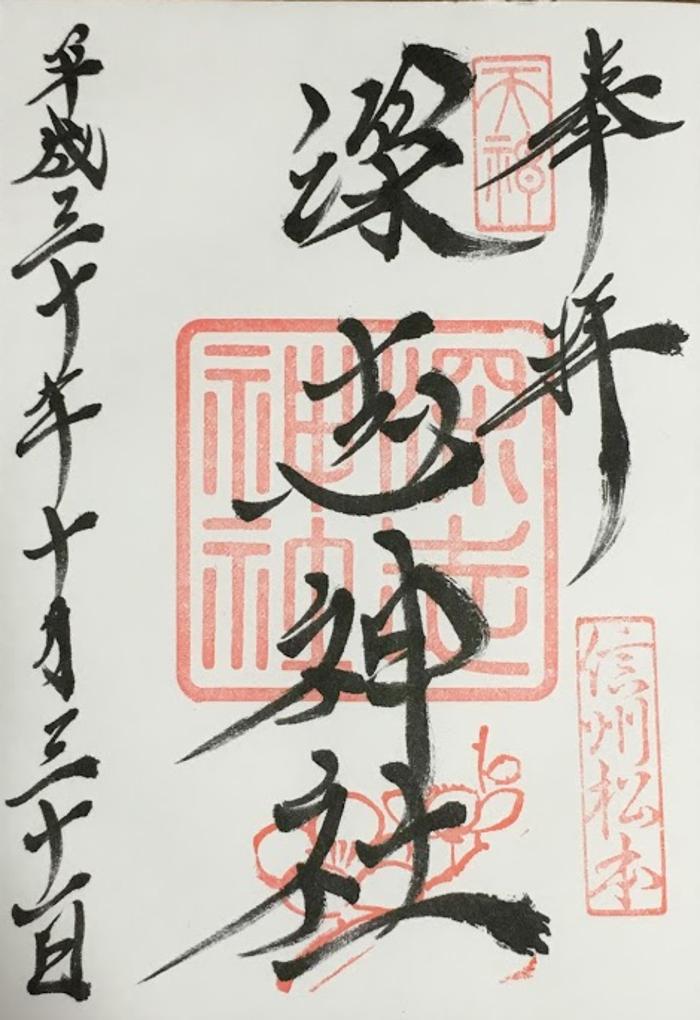 奉拝
天神
深志神社
深志神社
信州松本
平成三十年十月三十一日